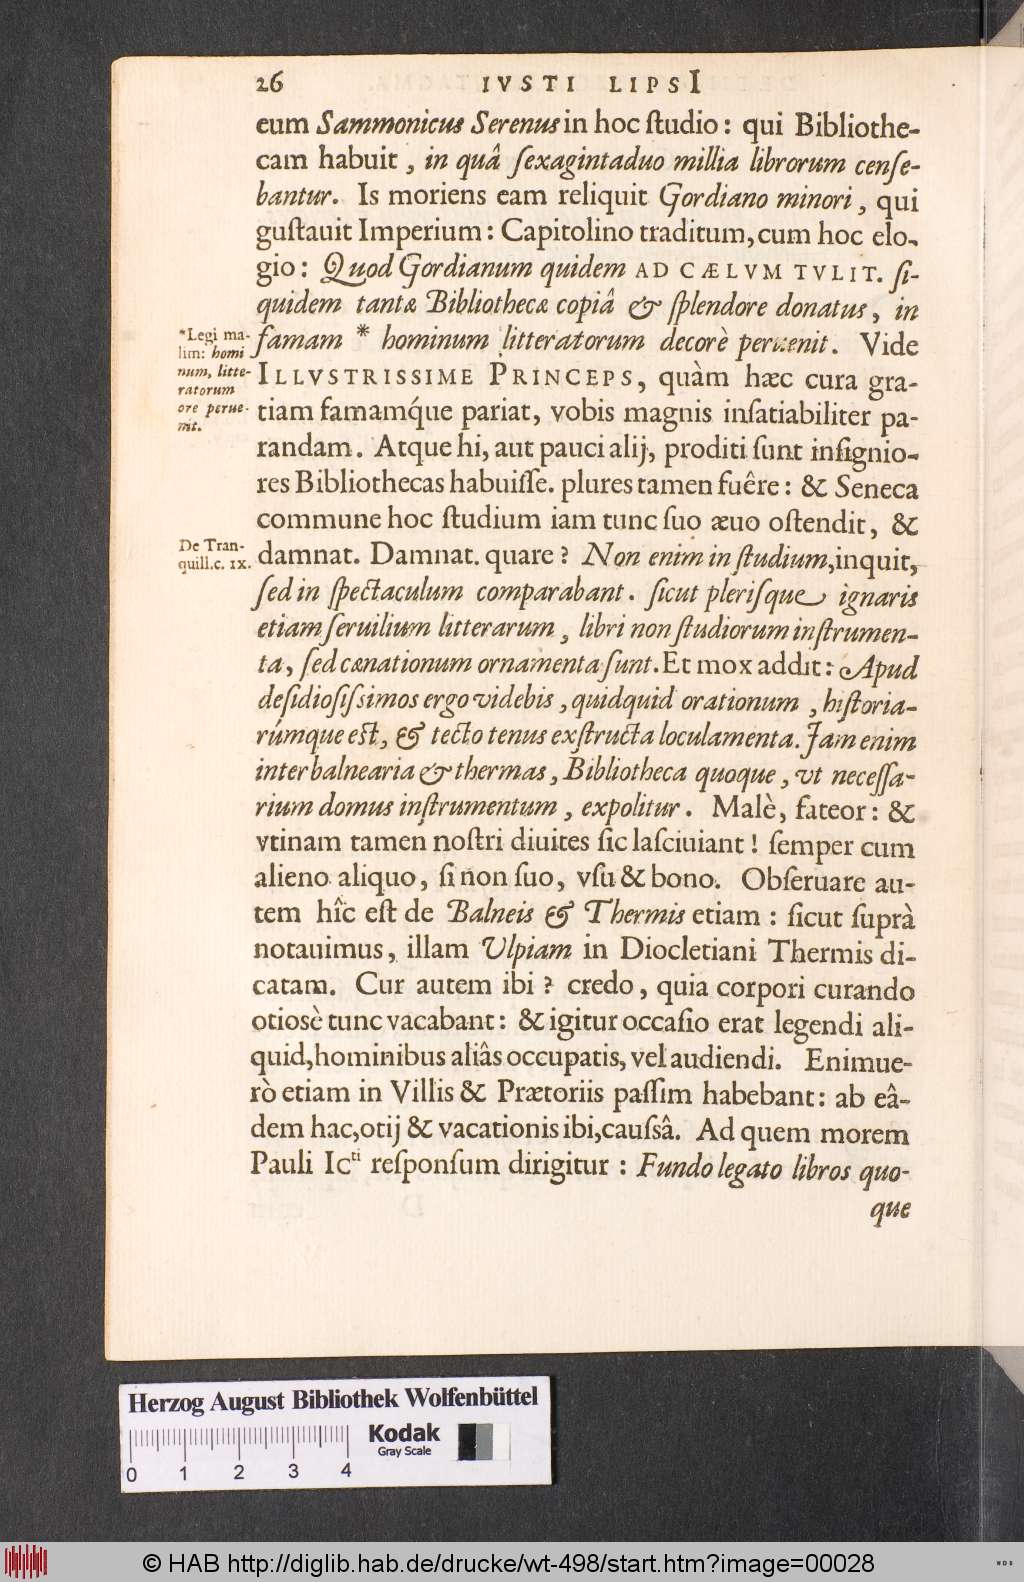 26 IVSTI LIPSI
eum Sammonicus Serenus in hoc ſtudio: qui Bibliothe-
cam habuit, in quâ ſexagintaduo millia librorum cenſe-
bantur. Is moriens eam reliquit Gordiano minori, qui
guſtauit Imperium: Capitolino traditum, cum hoc elo-
gio: Quod Gordianum quidem AD CÆLVM TVLIT. ſi-
quidem tantæ Bibliothecæ copiâ & ſplendore donatus, in
famam * hominum litteratorum decorè peruenit. Vide
ILLVSTRISSIME PRINCEPS, quàm hæc cura gra-
tiam famamq́ue pariat, vobis magnis inſatiabiliter pa-
randam. Atque hi, aut pauci alij, proditi ſunt inſignio-
res Bibliothecas habuiſſe. plures tamen fuêre: & Seneca
commune hoc ſtudium iam tunc ſuo æuo oſtendit, &
damnat. Damnat. quare? Non enim in ſtudium, inquit,
ſed in ſpectaculum comparabant. ſicut pleriſque ignaris
etiam ſeruilium litterarum, libri non ſtudiorum inſtrumen-
ta, ſed cænationum ornamenta ſunt. Et mox addit: Apud
deſidioſiſsimos ergo videbis, quidquid orationum, hiſtoria-
rúmque eſt, & tecto tenus exſtructa loculamenta. Jam enim
inter balnearia & thermas, Bibliotheca quoque, vt neceſſa-
rium domus inſtrumentum, expolitur. Malè, fateor: &
vtinam tamen noſtri diuites ſic laſciuiant! ſemper cum
alieno aliquo, ſi non ſuo, vſu & bono. Obſeruare au-
tem hîc eſt de Balneis & Thermis etiam: ſicut ſuprà
notauimus, illam Ulpiam in Diocletiani Thermis di-
catam. Cur autem ibi? credo, quia corpori curando
otiosè tunc vacabant: & igitur occaſio erat legendi ali-
quid, hominibus aliâs occupatis, vel audiendi. Enimue-
rò etiam in Villis & Prætoriis paſſim habebant: ab eâ-
dem hac, otij & vacationis ibi, cauſsâ. Ad quem morem
Pauli Icti reſponſum dirigitur: Fundo legato libros quo-
que
*Legi ma-
lim: homi
num, litte-
ratorum
ore perue-
nit.
De Tran-
quill. c. IX.
Herzog August Bibliothek Wolfenbüttel
Kodak
Gray Scale
0 1 2 3 4
© HAB http://diglib.hab.de/drucke/wt-498/start.htm?image=00028
WDB